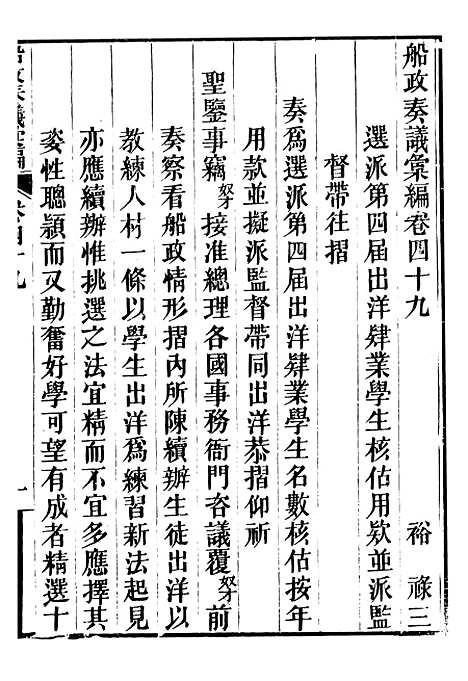 船政奏議彙編卷四十九
裕祿三
選派第四屆出洋肄業學生核估用欵並派監
督帶往摺
奏爲選派第四屆出洋肄業學生名數核估按年
用款並擬派監督帶同出洋恭摺仰祈
聖鑒事竊奴才接准總理各國事務衙門咨議覆奴才前
奏察看船政情形摺內所陳續辦生徒出洋以
教練人材一條以學生出洋爲練習新法起見
亦應續辦惟挑選之法宜精而不宜多應擇其
姿性聰頴而又勤奮好學可望有成者精選十
船政奏議彙編 卷四十九 一